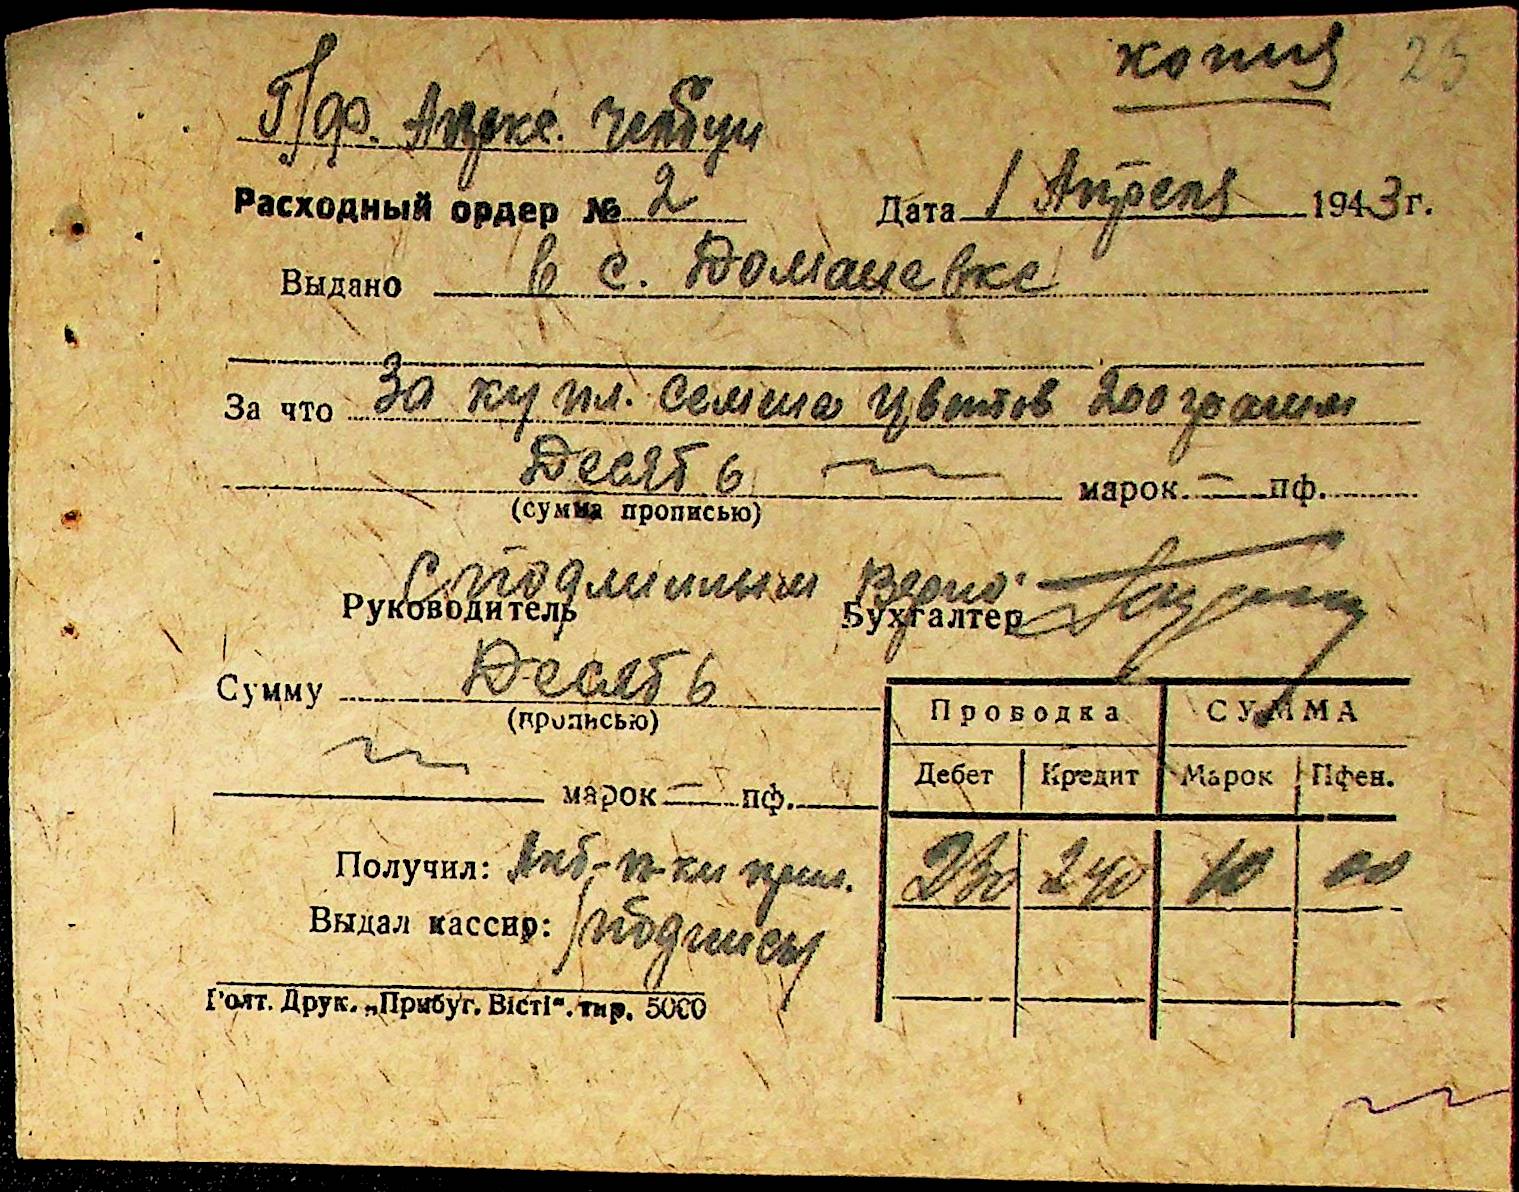 копия 25
П/ф. чибуи
Расходный ордер № 2 Дата 1 Апреля 1943 г.
Выдано в с. Доманевке
За что За купл. семена цветов 200 грамм
Десять марок – пф.
(сумма прописью)
С подлинным верно:
Руководитель Бухгалтер
Сумму Десять
(прописью)
марок – пф.
Проводка СУММА
Дебет Кредит Марок Пфен.
230 240 10 00
Получил:
Выдал кассир: /подписи/
Голт. Друк. „Прибуг. Вісті“. тир. 5000